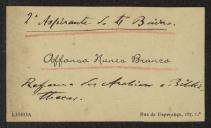 2º Aspirante do 4º Bairro
Affonso Nunes Branco
Reforma das Archivos e Biblio
thecas.
LISBOA
Rua da Esperança, 187, 1.º